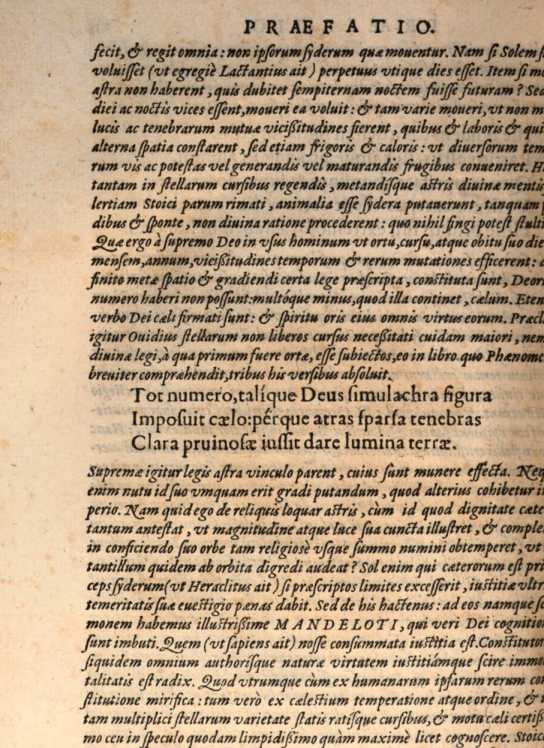 PRAEFATIO.
fecit, & regit omnia: non ipsorum syderum quæ mouentur. Nam si Solem s
voluisset (vt egregiè Lactantius ait) perpetuus vtique dies esset. Item si mo
astra non haberent, quis dubitet sempiternam noctem fuisse futuram? Sed
diei ac noctis vices essent, moueri ea voluit: & tam varie moueri, vt non m
lucis ac tenebrarum mutuæ vicißitudines fierent, quibus & laboris & qui
alterna spatia constarent, sed etiam frigoris & caloris: vt diuersorum tem
rum vis ac potestas vel generandis vel maturandis frugibus conueniret. H
tantam in stellarum cursibus regendis, metandísque astris diuinæ mentis
lertiam Stoici parum rimati, animalia esse sydera putauerunt, tanquam
dibus & sponte, non diuina ratione procederent: quo nihil fingi potest stulti
Quæ ergo à supremo Deo in vsus hominum vt ortu, cursu, atque obitu suo die
mensem, annum, vicißitudines temporum & rerum mutationes efficerent:
finito metæ spatio & gradiendi certa lege præscripta, constituta sunt, Deor
numero haberi non possunt: multóque minus, quod illa continet, cælum. Eten
verbo Dei cæli firmati sunt: & spiritu oris eius omnis virtus eorum. Præcl
igitur Ouidius stellarum non liberos cursus necessitati cuidam maiori, nem
diuinæ legi, à qua primum fuere ortæ, esse subiectos, eo in libro quo Phænome
breuiter compræhendit, tribus his versibus absoluit.
Tot numero, talíque Deus simulachra figura
Imposuit cælo: pérque atras sparsa tenebras
Clara pruinosæ iussit dare lumina terræ.
Supremæ igitur legis astra vinculo parent, cuius sunt munere effecta. Neq
enim nutu id suo vmquam erit gradi putandum, quod alterius cohibetur i
perio. Nam quid ego de reliquis loquar astris, cùm id quod dignitate cæte
tantum antestat, vt magnitudine atque luce sua cuncta illustret, & comple
in conficiendo suo orbe tam religiosè vsque summo numini obtemperet, vt
tantillum quidem ab orbita digredi audeat? Sol enim qui cæterorum est pri
ceps syderum (vt Heraclitus ait) si præscriptos limites excesserit, iustitiæ vltr
temeritatis suæ euestigio pænas dabit. Sed de his hactenus: ad eos namque s
monem habemus illustrißime MANDELOTI, qui veri Dei cognitio
sunt imbuti. Quem (vt sapiens ait) nosse consummata iustitia est. Constitutor
siquidem omnium authorísque naturæ virtatem iustitiámque scire immo
talitatis est radix. Quod vtrumque cùm ex humanarum ipsarum rerum co
stitutione mirifica: tum verò ex cælestium temperatione atque ordine, &
tam multiplici stellarum varietate statis ratísque cursibus, & motu cæli certiß
mo ceu in speculo quodam limpidißimo quàm maximè licet cognoscere. Stoic